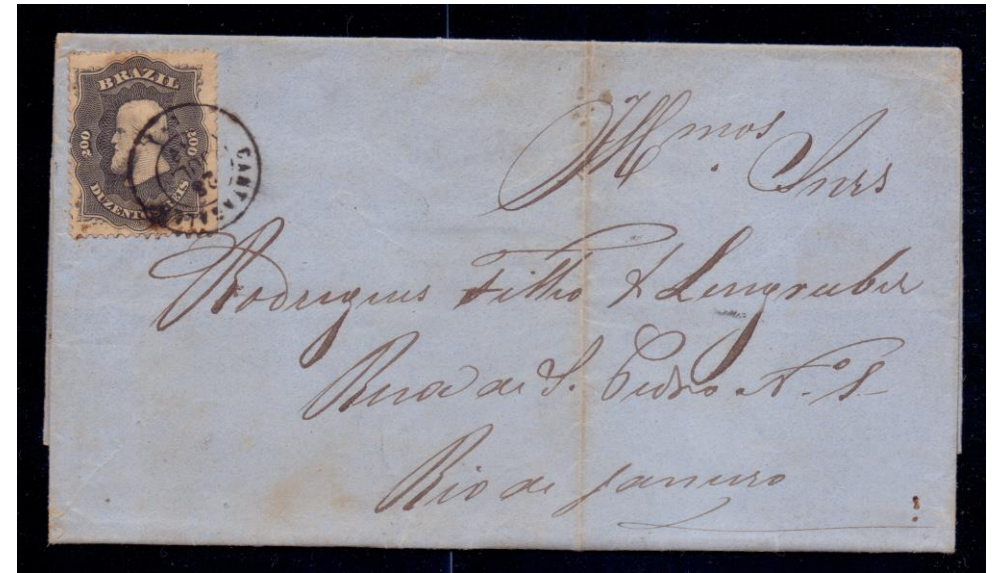 BRAZIL
200 200
DUZENTOS REIS
CANTAGALLO
28
Illmos
Snrs
Rodrigues Filho & Lengruber
Rua de S. Pedro Nº
Rio de Janeiro